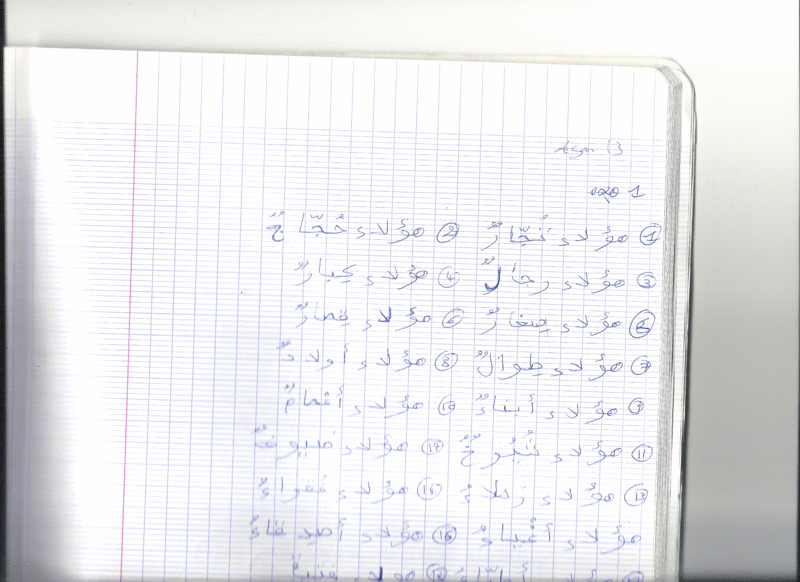 Leçon 13
exo 1
① هؤلاءِ تُجَّارٌ ② هؤلاءِ حُجَّاجٌ
③ هؤلاءِ رجالٌ ④ هؤلاءِ كِبارٌ
⑤ هؤلاءِ صِغارٌ ⑥ هؤلاءِ قِصارٌ
⑦ هؤلاءِ طِوالٌ ⑧ هؤلاءِ أولادٌ
⑨ هؤلاءِ أبناءٌ ⑩ هؤلاءِ أَعْمامٌ
⑪ هؤلاءِ شُيُوخٌ ⑫ هؤلاءِ ضُيوفٌ
⑬ هؤلاءِ زملاءٌ ⑭ هؤلاءِ فُقراءٌ
هؤلاءِ أَغْنِياءٌ ⑯ هؤلاءِ أصدِقاءٌ
هؤلاء ⑱ هؤلاء فتيةٌ